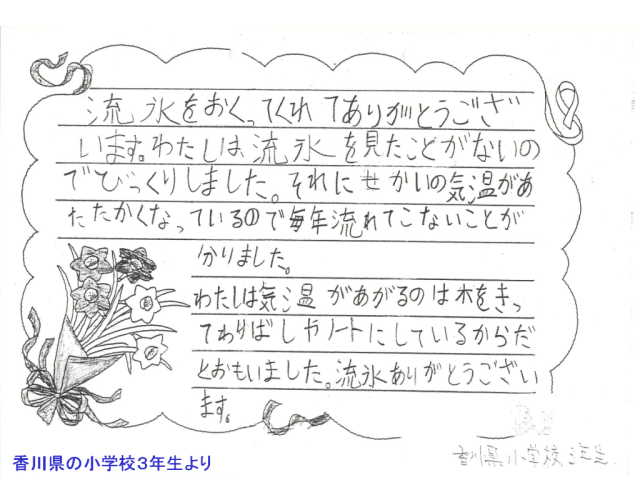 流氷をおくってくれてありがとうござ
います。わたしは流氷を見たことがないの
でびっくりしました。それにせかいの気温があ
たたかくなっているので毎年流れてこないことが
分りました。
わたしは気温があがるのは木をきっ
てわりばしやノートにしているからだ
とおもいました。流氷ありがとうござい
ます。
香川県小学校3年生
香川県の小学校3年生より